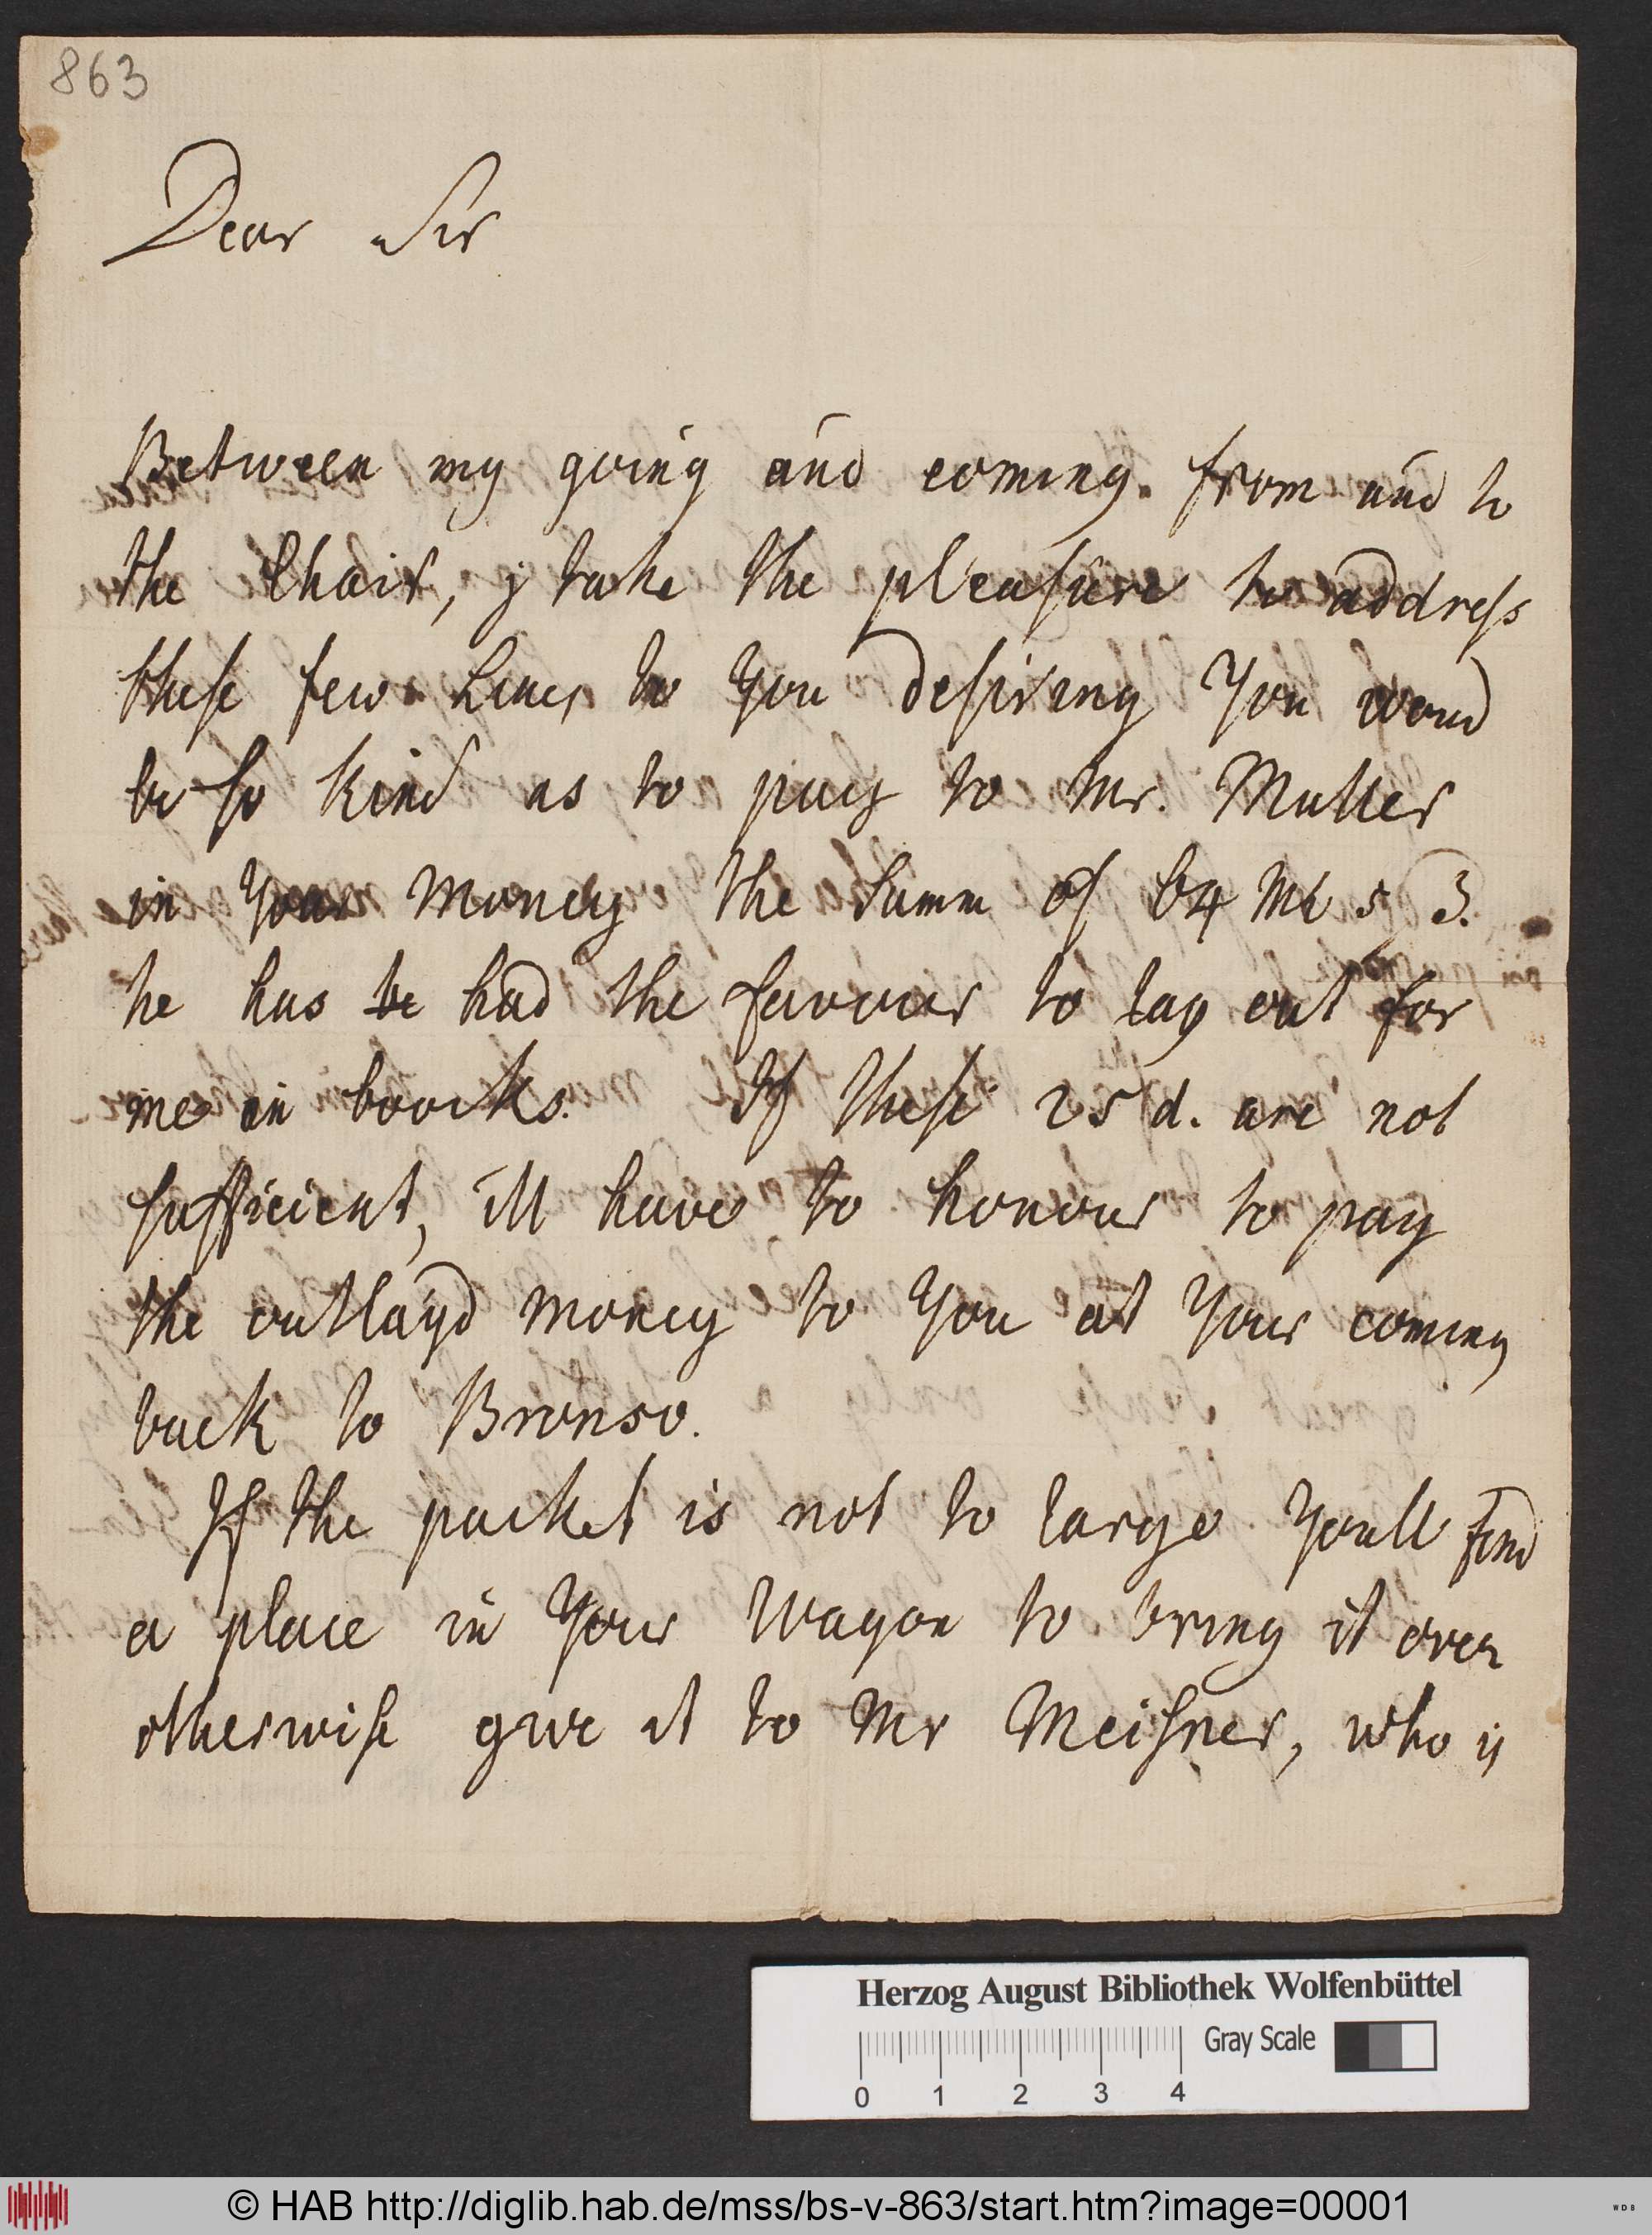 863
Dear Sir
Between my going and coming from and to
the Chait, j take the pleasure to address
these few Lines to You desiring You woud
be so kind as to pay to Mr. Muller
in Your Money the Summ of 64 M 5 3.
he has be had the favour to lay out for
me in boocks. If these 25 d. are not
sufficient, ill have to honour to pay
the outlayd money to You at Your coming
back to Bronso.
If the packet is not to large Youll find
a place in Your Wagon to bring it over
otherwise give it to Mr Meisner, who is
Herzog August Bibliothek Wolfenbüttel
Gray Scale
0 1 2 3 4
© HAB http://diglib.hab.de/mss/bs-v-863/start.htm?image=00001
WDB